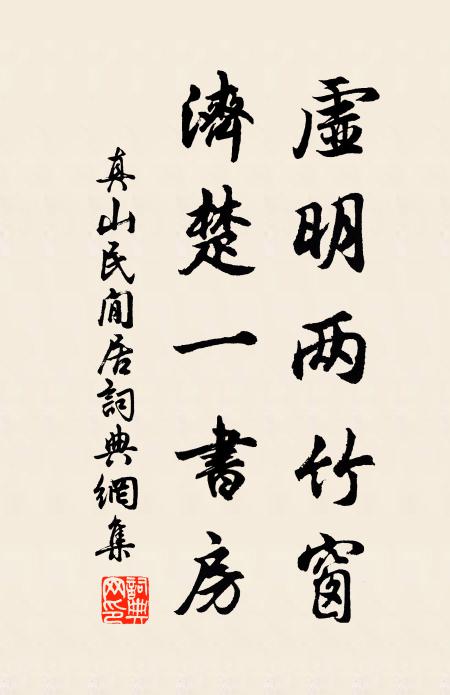 虛明两竹窗
濟楚一書房
真山民閒居詞典網集
詞典网印